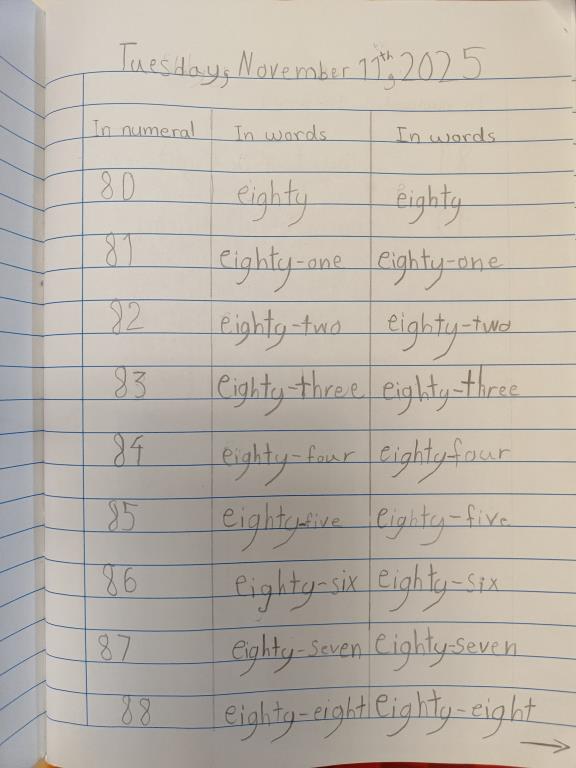 Tuesday, November 11th, 2025
In numeral In words In words
80 eighty eighty
81 eighty-one eighty-one
82 eighty-two eighty-two
83 eighty-three eighty-three
84 eighty-four eighty-four
85 eighty-five eighty-five
86 eighty-six eighty-six
87 eighty-seven eighty-seven
88 eighty-eight eighty-eight
→